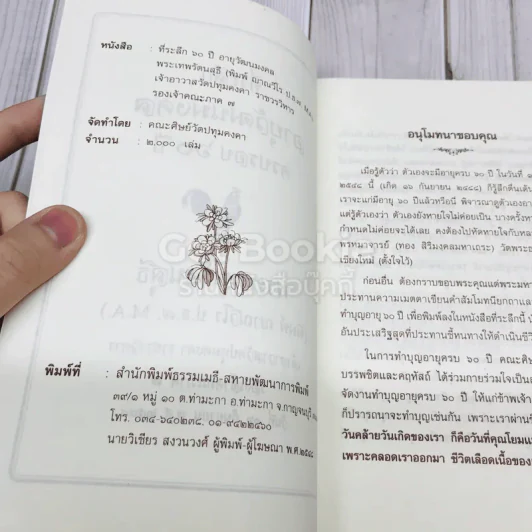 หนังสือ : ที่ระลึก ๖๐ ปี อายุวัฒนมงคล
พระเทพรัตนสุธี (พิมพ์ ญาณวีโร ป.ธ.๗, M.A.)
เจ้าอาวาสวัดปทุมคงคา ราชวรวิหาร
รองเจ้าคณะภาค ๗
จัดทำโดย : คณะศิษย์วัดปทุมคงคา
จำนวน : ๒,๐๐๐ เล่ม
พิมพ์ที่ : สำนักพิมพ์ธรรมเมธี-สหายพัฒนาการพิมพ์
๓๙/๑ หมู่ ๑๐ ต.ท่ามะกา อ.ท่ามะกา จ.กาญจนบุรี
โทร. ๐๓๔-๖๔๐๒๓๘. ๐๑-๙๔๒๒๔๖๐
นายวิเชียร สงวนวงศ์ ผู้พิมพ์-ผู้โฆษณา พ.ศ.๒๕๔๘
อนุโมทนาขอบคุณ
เมื่อรู้ตัวว่า ตัวเองจะมีอายุครบ ๖๐ ปี ในวันที่ ๑
๒๕๔๘ นี้ (เกิด ๑๖ กันยายน ๒๔๘๘) ก็รู้สึกตื่นเต้น
เราจะแก่มีอายุ ๖๐ ปีแล้วหรือนี่ พิจารณาดูตัวเองอา
แต่รู้ตัวเองว่า ตัวเองยังหายใจไม่ค่อยเป็น บางครั้งหา
กำหนดไม่ค่อยจะได้เลย คงต้องไปหัดหายใจกับหล
พรหมาจารย์ (ทอง สิริมงคลมหาเถระ) วัดพระธ
เชียงใหม่ (ตั้งใจไว้)
ก่อนอื่น ต้องกราบขอบพระคุณแด่พระมหา
ประทานความเมตตาเขียนคำสัมโมทนียกถาแล
ทำบุญอายุ ๖๐ ปี เพื่อพิมพ์ลงในหนังสือที่ระลึกนี้ นั
อันประเสริฐสุดที่ประทานชี้ทนทางให้ดำเนินชีวิ
ในการทำบุญอายุครบ ๖๐ ปี คณะศิษ
บรรพชิตและคฤหัสถ์ ได้ร่วมกายร่วมใจเป็นอ
จัดงานทำบุญอายุครบ ๖๐ ปี ให้แก่ข้าพเจ้า
ก็ปรารถนาจะทำบุญเช่นกัน เพราะเราผ่าน
วันคล้ายวันเกิดของเรา ก็คือวันที่คุณโยมแ
เพราะคลอดเราออกมา ชีวิตเลือดเนื้อของ